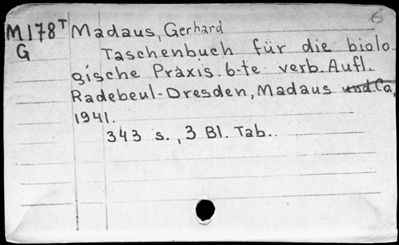 6
M178T Madaus, Gerhard
G Taschenbuch für die biolo-
gische Praxis. 6-te verb. Aufl.
Radebeul-Dresden, Madaus und Co,
1941.
343 s., 3 Bl. Tab..